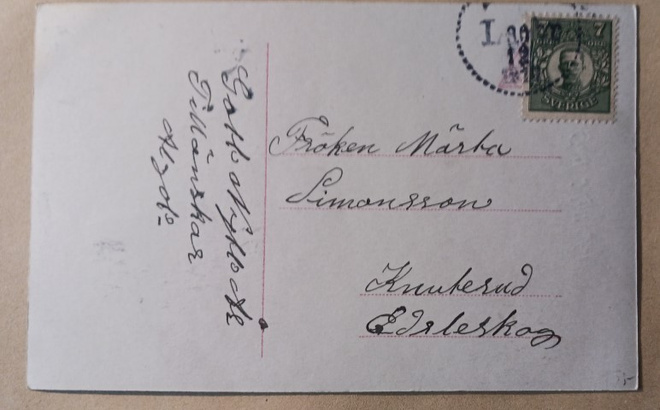 Gott Nytt År
Tillönskar
Fröken Märta
Simonsson
Knuterud
Edsleskog
7
SVERIGE